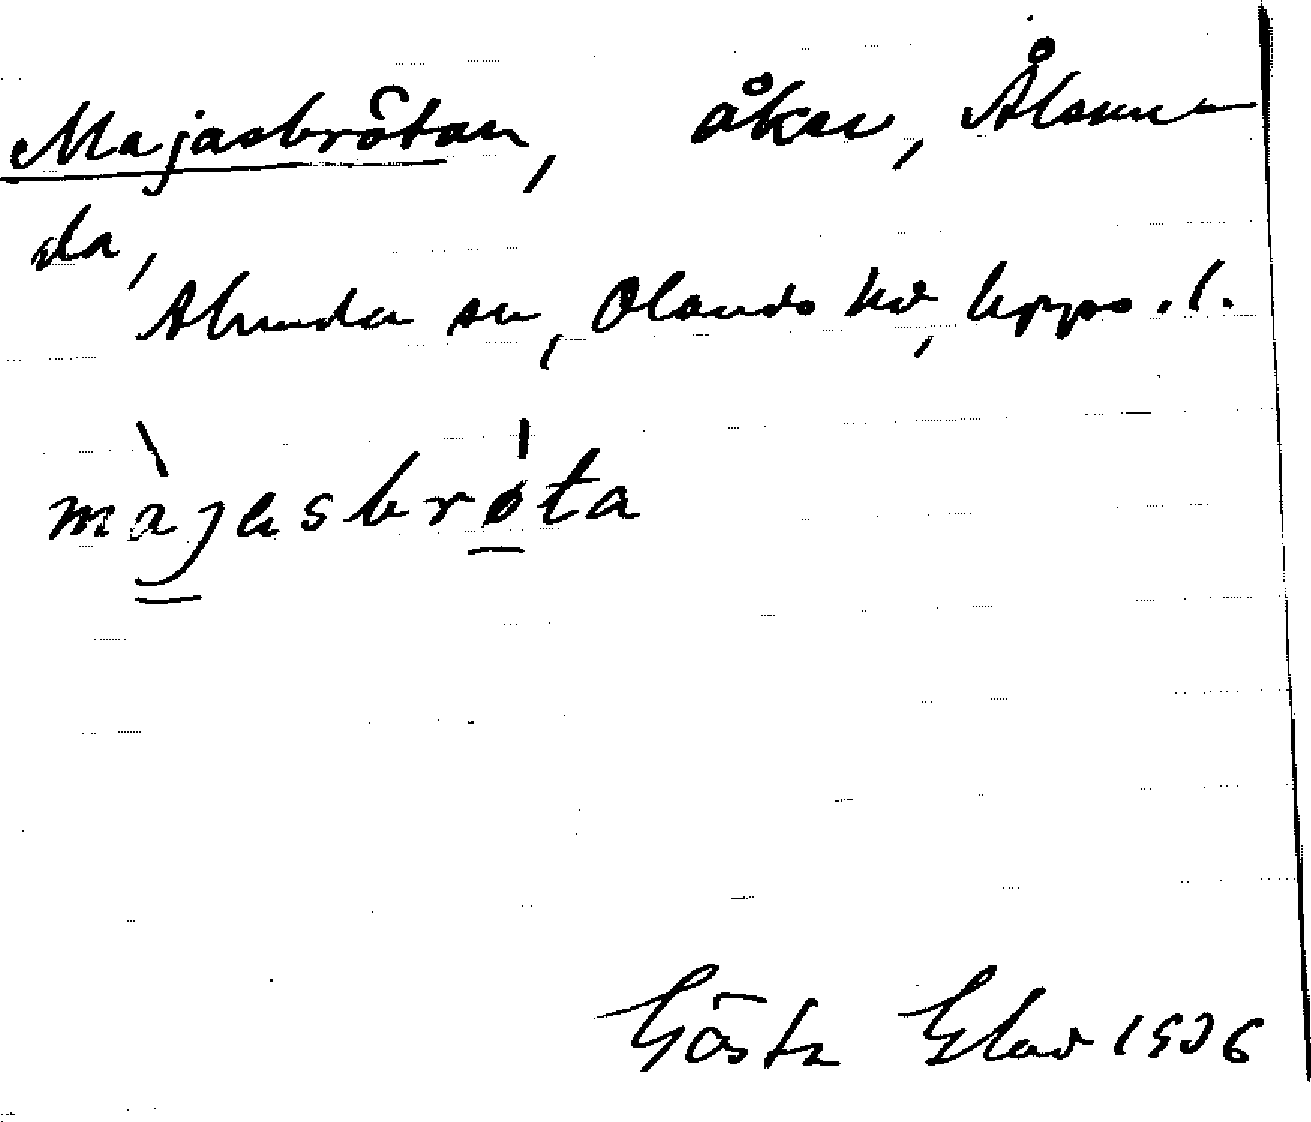 Majasbrötan, åker, Ålsun-
da,
Alunda sn, Olands hd, Upps. l.
màjasbrøta
Gösta Glad 1936